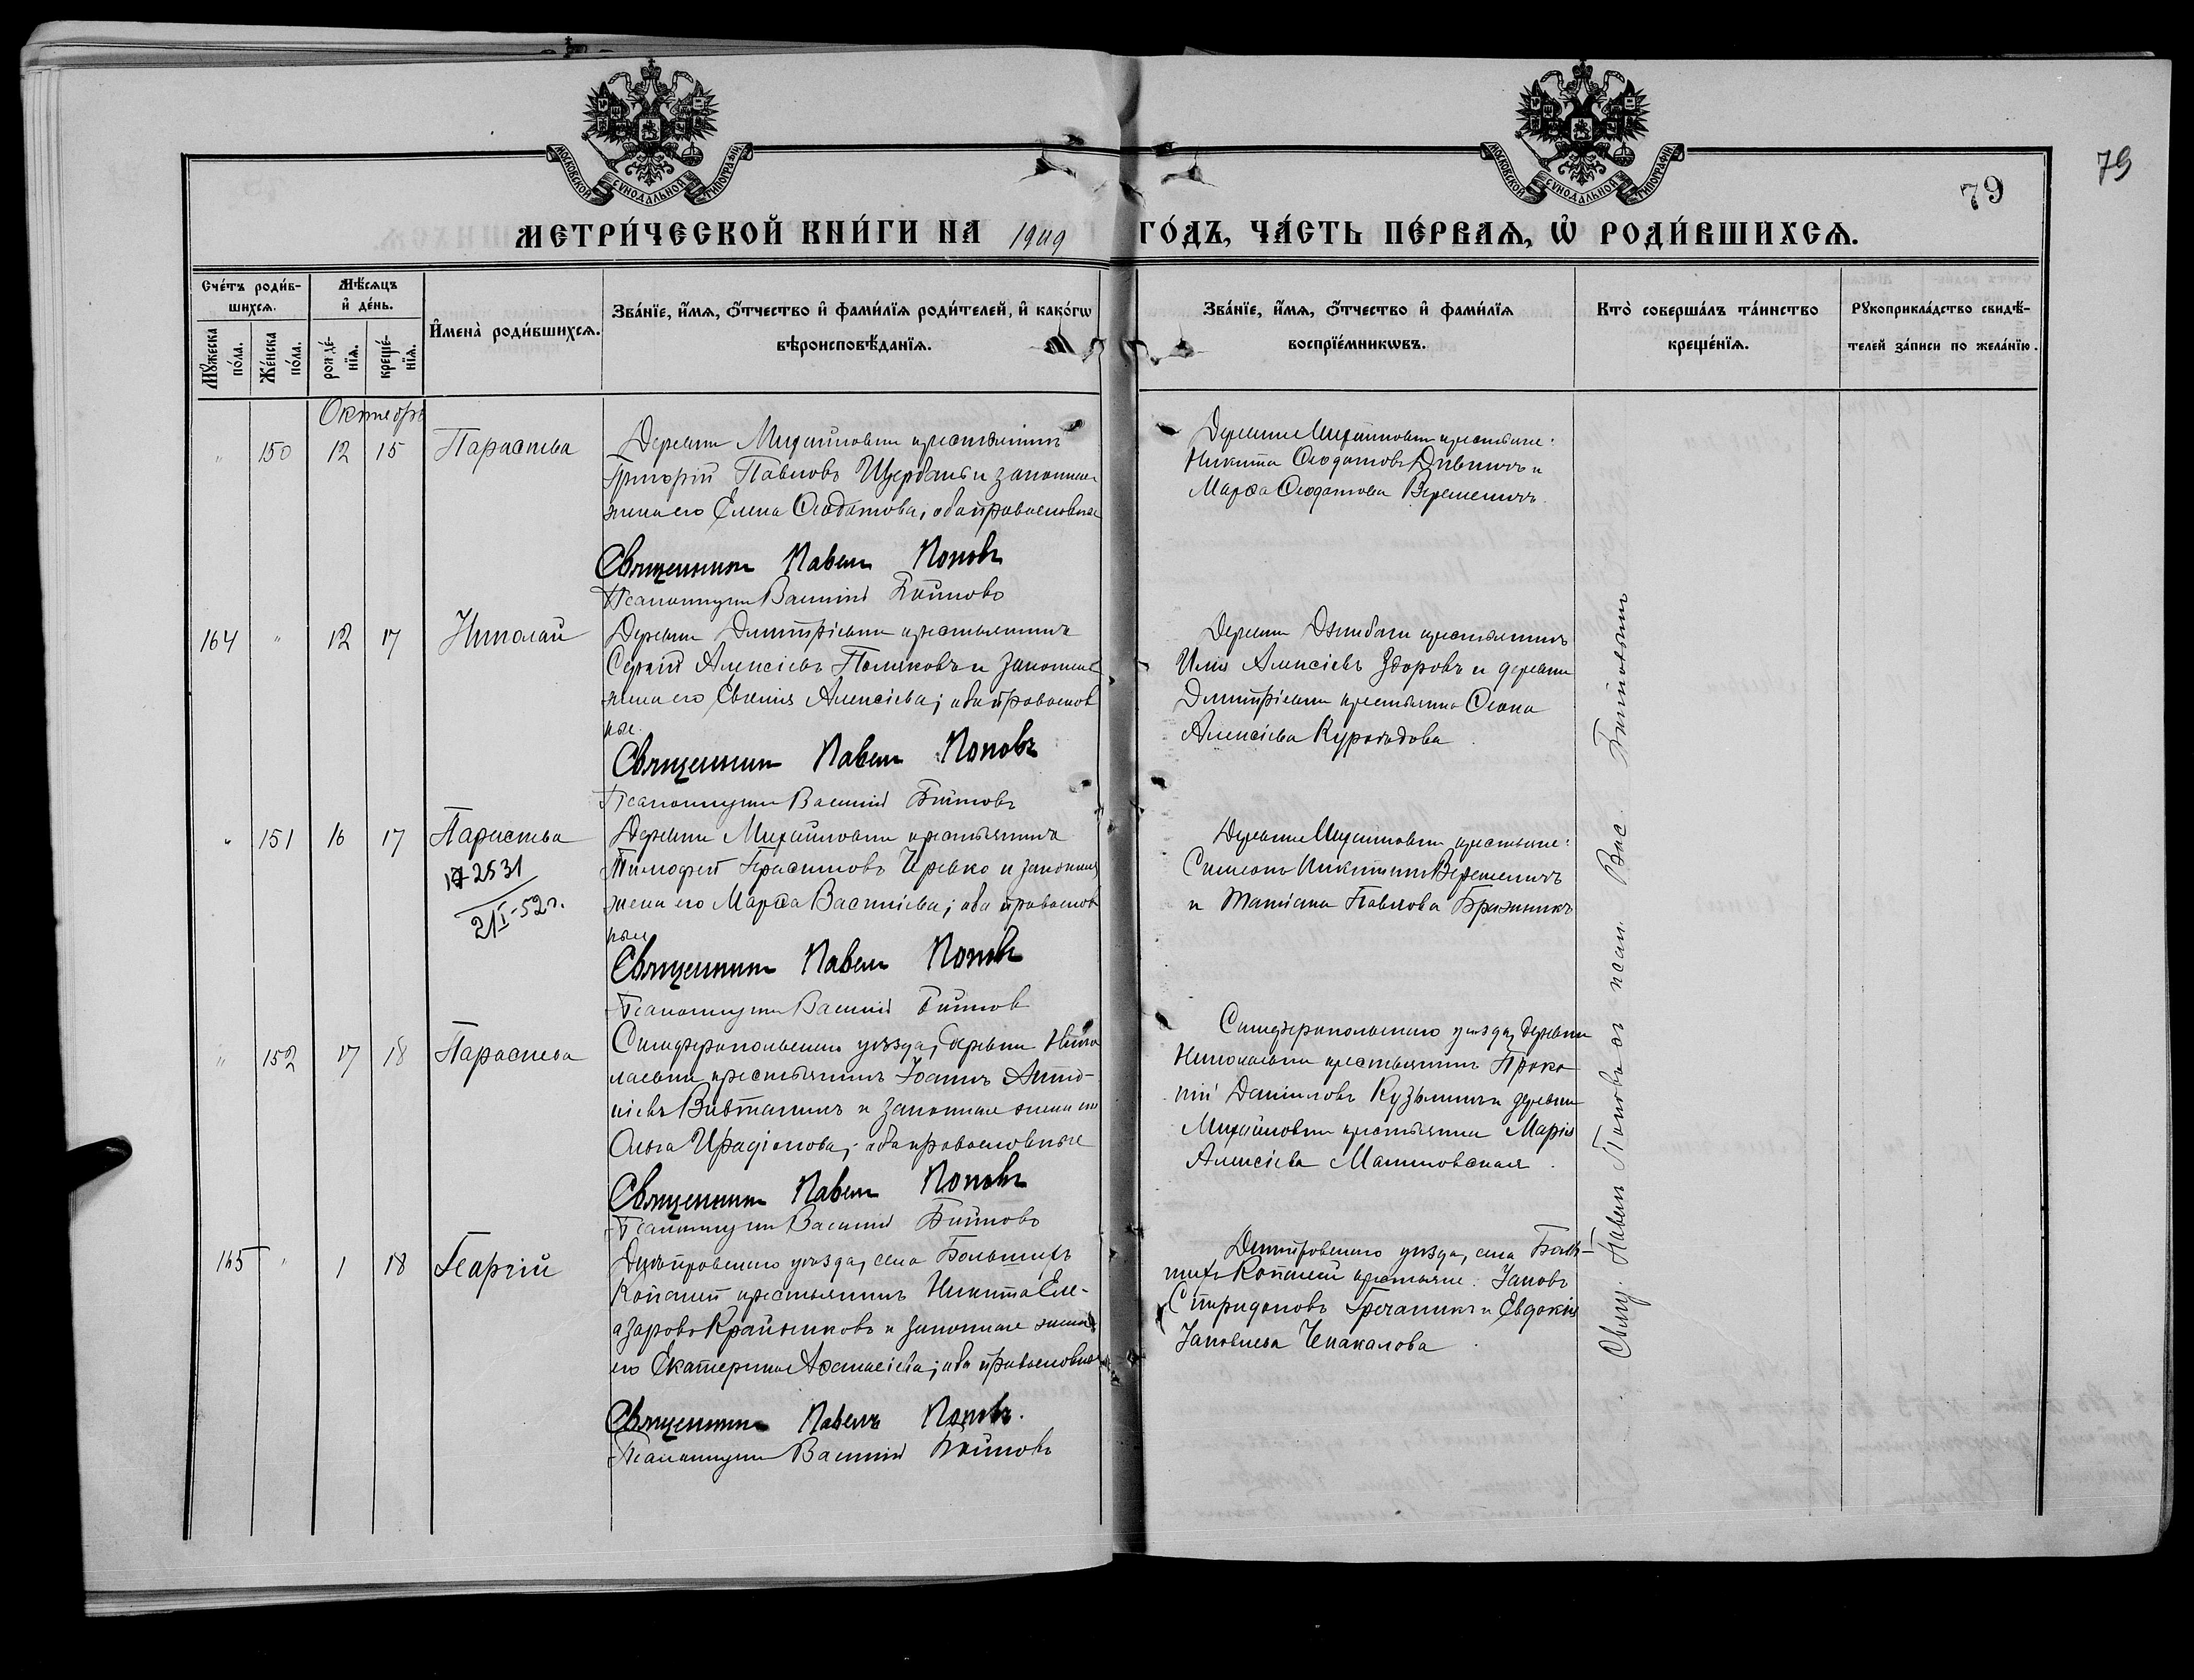 МОСКОВСКОЙ СѴНОДАЛЬНОЙ ТИПОГРАФІИ
МОСКОВСКОЙ СѴНОДАЛЬНОЙ ТИПОГРАФІИ
79
79
МЕТРИ́ЧЕСКОЙ КНИ́ГИ НА 1909 ГО́ДЪ, ЧА́СТЬ ПЕ́РВАѦ, Ѡ҆ РОДИ́ВШИХСѦ.
Сче́тъ роди́в-
шихсѧ.
Мꙋ́жеска по́ла.
Же́нска по́ла.
Мѣ́сѧцъ
и҆ де́нь.
рожде́-
нїѧ.
креще́-
нїѧ.
И҆мена̀ роди́вшихсѧ.
Зва́нїе, и҆́мѧ, ѻ҆́тчество и҆ фами́лїѧ роди́телей, и҆ како́гѡ
вѣроисповѣ́данїѧ.
Зва́нїе, и҆́мѧ, ѻ҆́тчество и҆ фами́лїѧ
воспрїе́мникѡвъ.
Кто̀ соверша́лъ та́инство
креще́нїѧ.
Рꙋкоприкла́дство свидѣ́-
телей за́писи по жела́нїю.
Октябрь
" 150 12 15 Параскева
Деревни Михайловки крестьянинъ
Григорій Павловъ Щербань и законная
жена его Елена Ѳеодотова; оба православные
Священникъ Павелъ Поповъ
Псаломщикъ Василій
Деревни Михайловки крестьяне:
Никита Ѳеодотовъ и
Марѳа Ѳеодотова Веремеичъ.
164 " 12 17 Николай
Деревни Димитріевки крестьянинъ
Сергій Алексіевъ Поляковъ и законная
жена его Евгенія Алексіева; оба православ
ные.
Священникъ Павелъ Поповъ
Псаломщикъ Василій
Деревни крестьянинъ
Илія Алексіевъ Здоровъ и деревни
Димитріевки крестьянка
Алексіева Курогодова.
" 151 16 17 Параскева
172531
21/I-52г.
Деревни Михайловки крестьянинъ
Тимофей Герасимовъ Черевко и законная
жена его Марѳа Василіева; оба православ
ные
Священникъ Павелъ Поповъ
Псаломщикъ Василій
Деревни Михайловки крестьяне:
Симеонъ Никитинъ Веремеичъ
и Татіана Павлова Бражникъ
" 152 17 18 Параскева
Симферопольскаго уѣзда, деревни Нико
лаевки крестьянинъ Іоаннъ Анто-
ніевъ и законная жена его
Ольга Иродіонова; оба православные
Священникъ Павелъ Поповъ
Псаломщикъ Василій
Симферопольскаго уѣзда, деревни
Николаевки крестьянинъ Проко
пій Даніиловъ Кузьминъ и деревни
Михайловки крестьянка Марія
Алексіева Малиновская.
165 " 1 18 Георгій
Днѣпровскаго уѣзда, села Большихъ
Копаней крестьянинъ Никита Еле-
азаровъ Крайниковъ и законная жена
его Екатерина Аѳанасіева; оба православные
Священникъ Павелъ Поповъ.
Псаломщикъ Василій
Днѣпровскаго уѣзда, села Боль-
шихъ Копаней крестьяне: Іаковъ
Спиридоновъ Гречаникъ и Евдокія
Іаковлева Чекалова.
Свящ. Павелъ Поповъ съ псал. Вас.